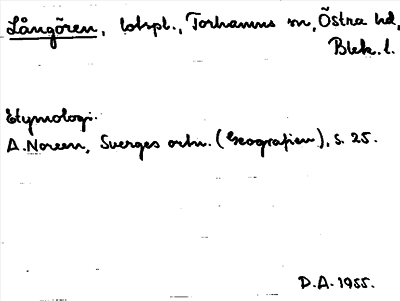 Långören, lotspl., Torhamns sn, Östra hd,
Blek. l.
Etymologi.
A. Noreen, Sveriges ortn. (Geografien), s. 25.
D.A. 1955.